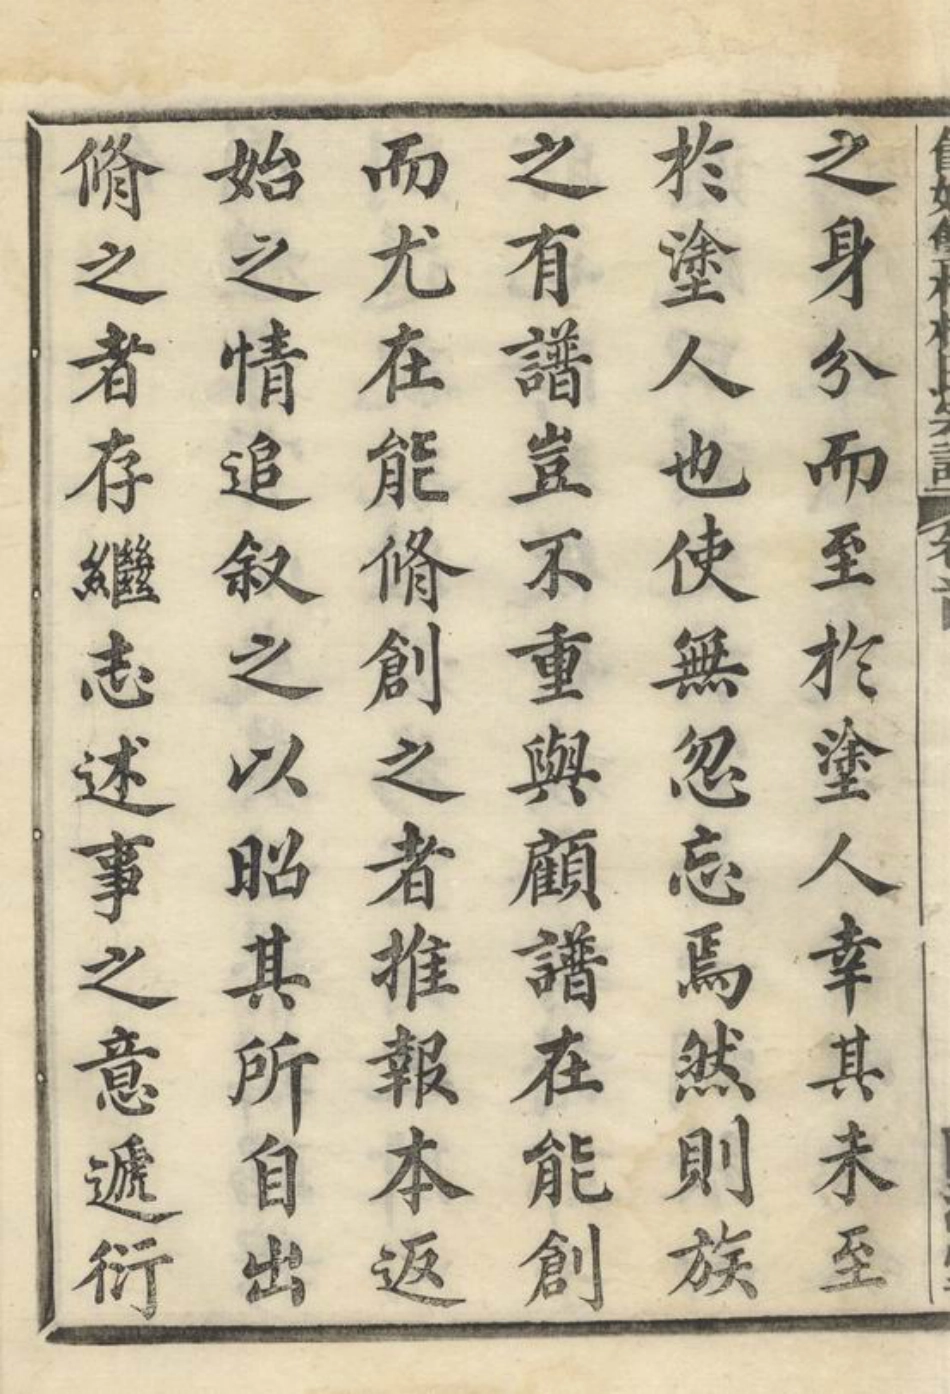 之身分而至於塗人幸其未至
於塗人也使無忽忘焉然則族
之有譜豈不重與顧譜在能創
而尤在能脩創之者推報本返
始之情追叙之以昭其所自出
脩之者存繼志述事之意遞衍